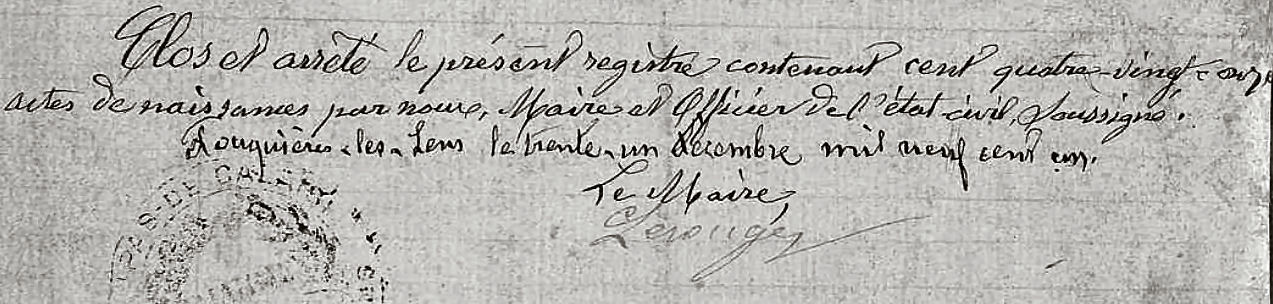 Clos et arrêté le présent registre contenant cent quatre-vingt-onze
actes de naissances par nous, Maire et Officier de l'état-civil, soussigné.
Fouquières-les-Lens le trente-un décembre mil neuf cent un.
Le Maire,
Lerouge
S-DE CALAIS